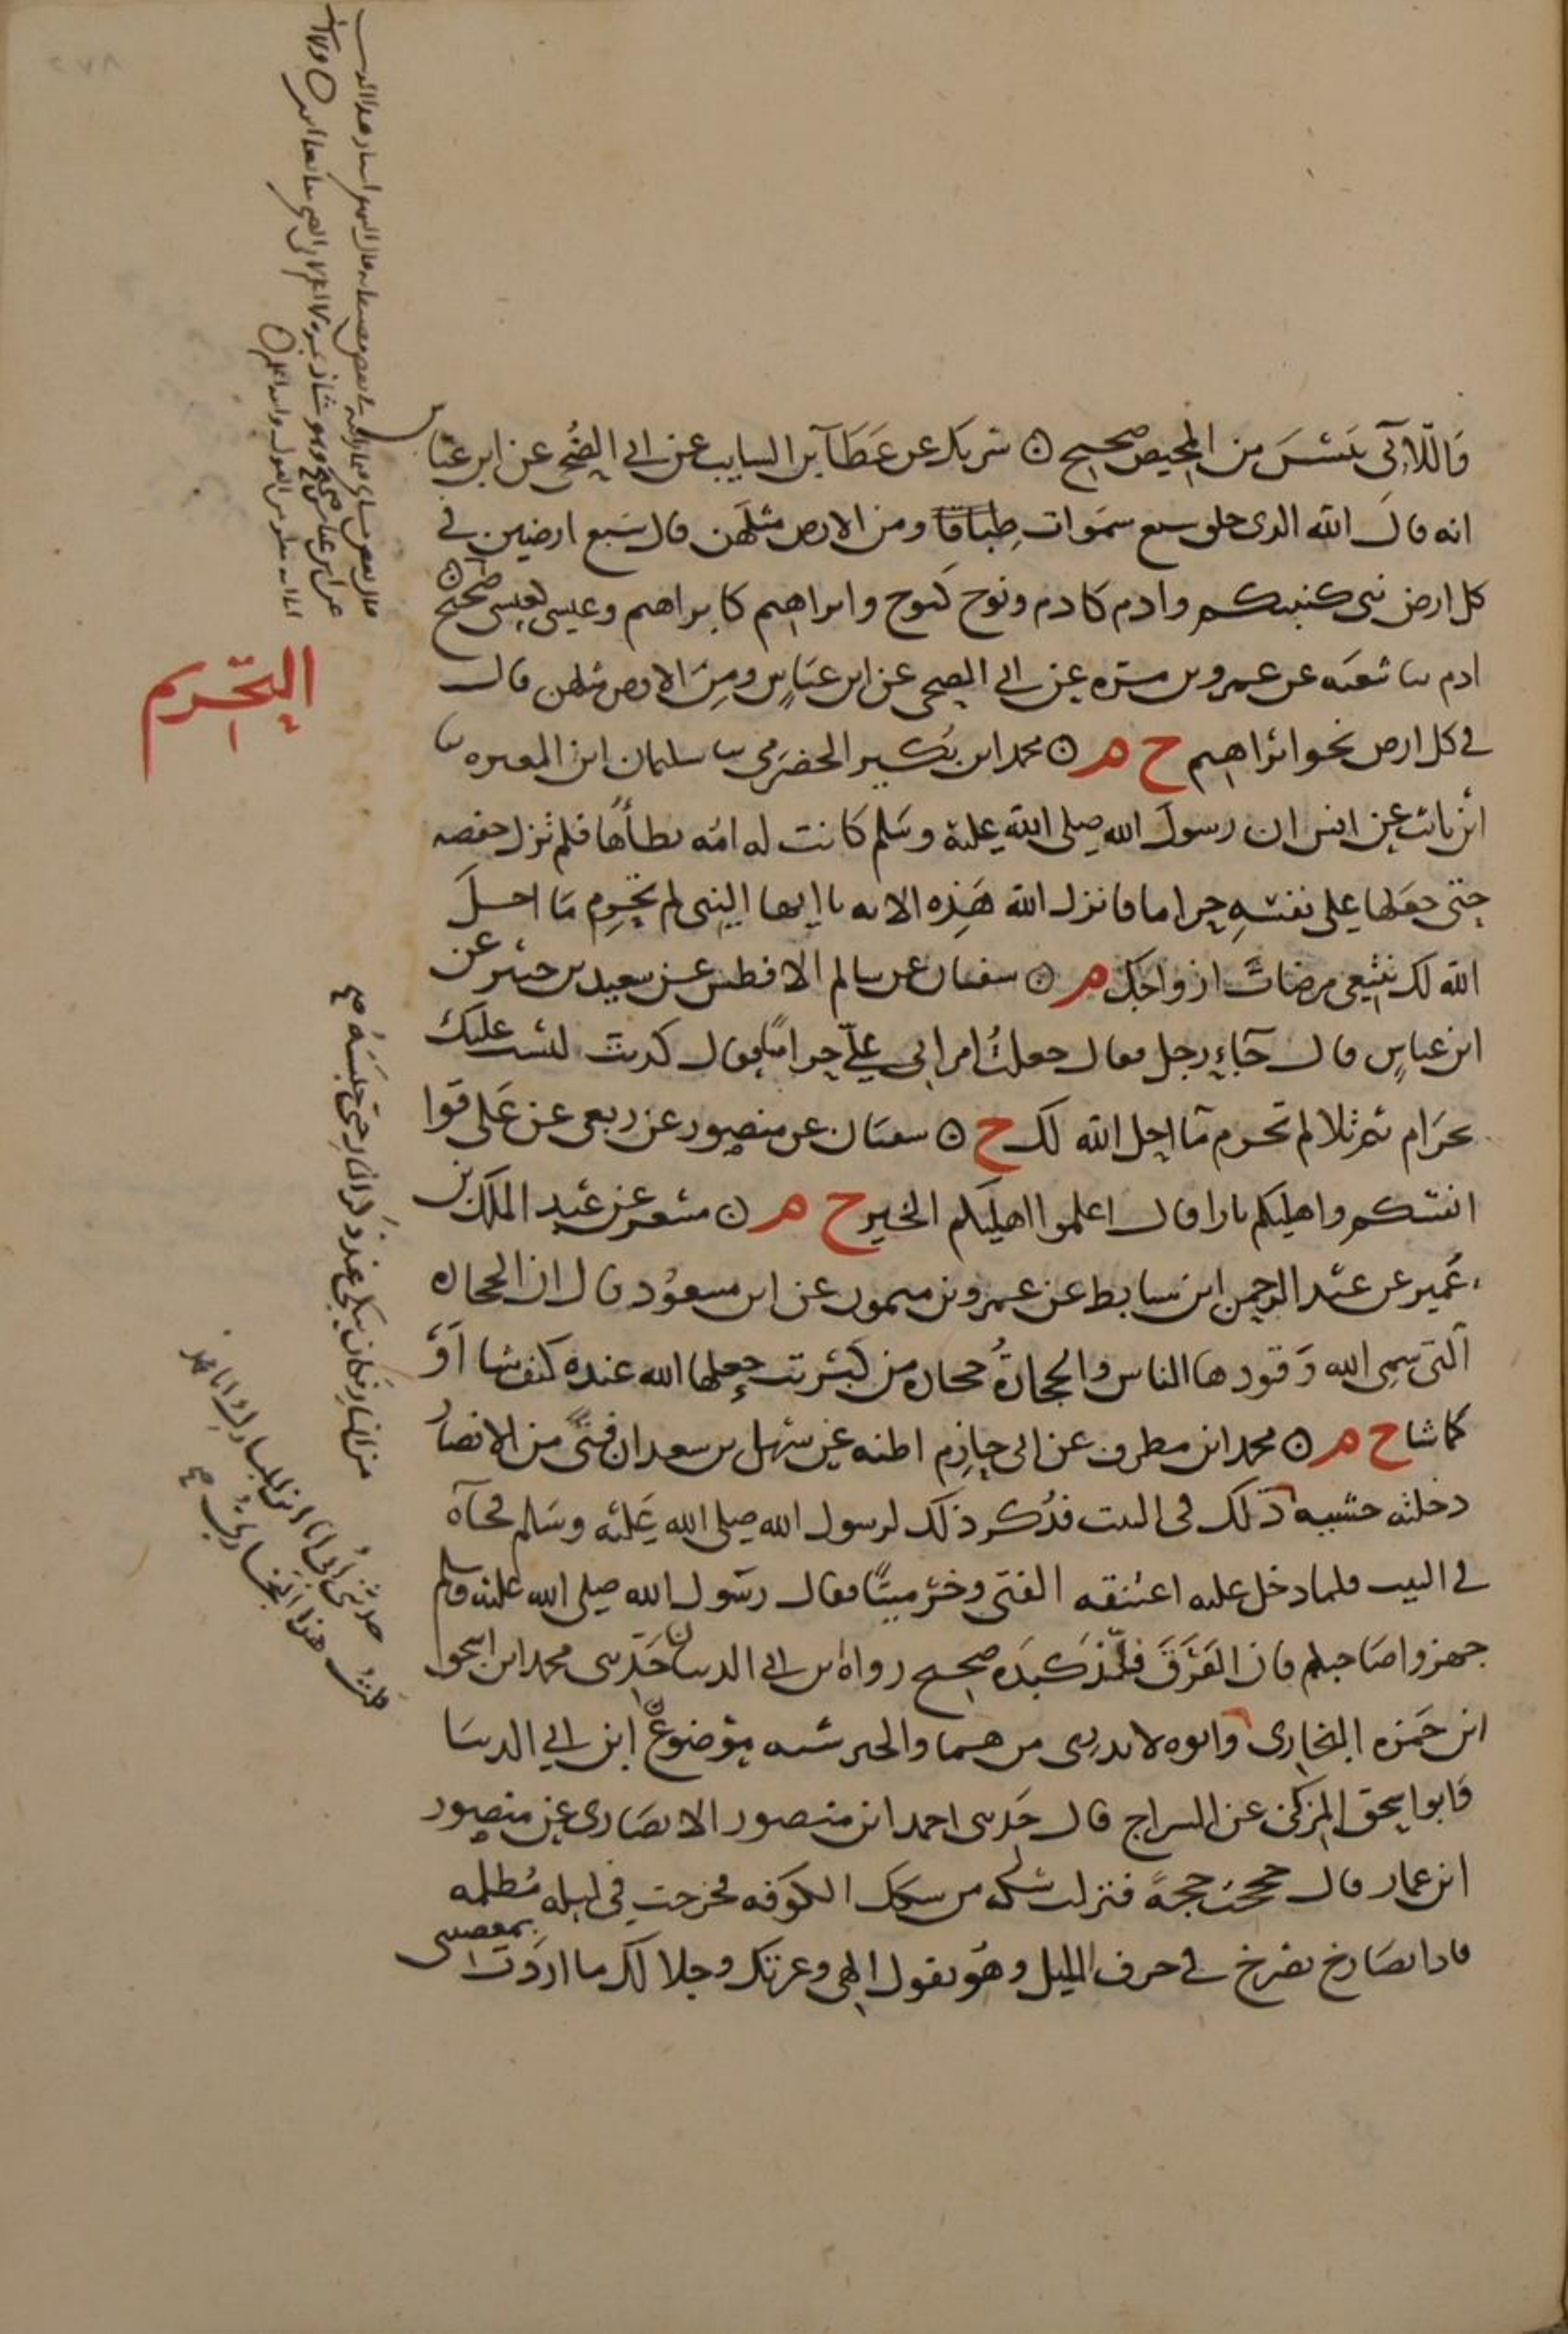 وَاللّائي يَئسْنَ من المحيض صحيح ۞ شريك عن عَطَآ بن السايب عن ابي الضُحى عن ابن عباس
انه قال الله الذي خلق سبع سموات طباقا ومن الارض مثلهن قال سَبع ارضين في
كل ارض نبي كنبيكم وادم كادم ونوح كنوح وابراهيم كابراهيم وعيسى كعيسى صحيح ۞
ادم ثنا شعبه عن عمرو بن مره عن ابي الضحى عن ابن عباسٍ ومِنَ الارض مثلهن قال
في كل ارض نحو ابراهيم خ م ۞ محمد ابن بُكير الحضرَمي ثنا سليمان ابن المغيره ثنا
ثابت عن انس ان رسول الله صلى الله عليه وسَلم كانت له امَه يطأها فلم تزل حفصه
حتى جعَلها على نفسه حراما فانزل الله هَذِه الايه يا ايها النبي لم تحرِم مَا احلَ
الله لك تبتغي مرضات ازواجك م ۞ سفيان عن سالم الافطس عن سعيد بن جبير عن
ابن عباسٍ قال جَاء رجل فقال جعلتُ امراتي عليّ حرامًا فقال كذبت ليسَت عليك
بحَرام ثم تلا لم تحرم مَا احل الله لك خ ۞ سفيان عن منصور عن ربعي عن عَلي قوا
انفسكم واهليكم نارا قال اعلموا اهليكم الخير خ م ۞ مسعر عن عَبد الملك بن
عُمير عن عبد الرحمن ابن سابط عن عمرو بن ميمون عن ابن مسعوُد قال ان الحجاره
آلتي سمى الله وَقودها الناس والحجارةُ حجاره من كبريت جعلها الله عنده كيف شا اَوْ
كما شا خ م ۞ محمد ابن مطرف عن ابي حازِم اظنه عن سهل بن سعد ان فتًى من الانصار
دخلته خشيه
ذلك في البيت فذُكر ذلك لرسول الله صلى الله عَليه وسَلم فجآه
في البيت فلما دخل عليه اعتنقه الفتى وخرّ ميتًا فقال رسَول الله صلى الله عليه وسلم
جهزوا صَاحبكم فان الفَرَقَ فلّذ كبدَه صحيح رواه ابن ابي الدنيا حَدثني محمد ابن اسحق
ابن حَمزه البخاري وابوه لا يدرى من هما والخبر شبه موضوع ابن ابي الدنيَا
وَابو اسحق المزكي عن السراج قال حَدثني احمد ابن منصور الانصَاري عن منصور
ابن عمار قال حججت حجةً فنزلت سكه من سكك الكوَفه فخرجت في ليله مُظلمه
فاذا بصَارخ يصَرخ في جوف الليل وهُو يقول الهي وعزتك وجلالك ما اردَت بمعصيتي
التحريم
من النار فكان يبكي عند ذِكر النار حتى حبسَهُ صح
حدثني ابي انا ابن المبارك انا محمد